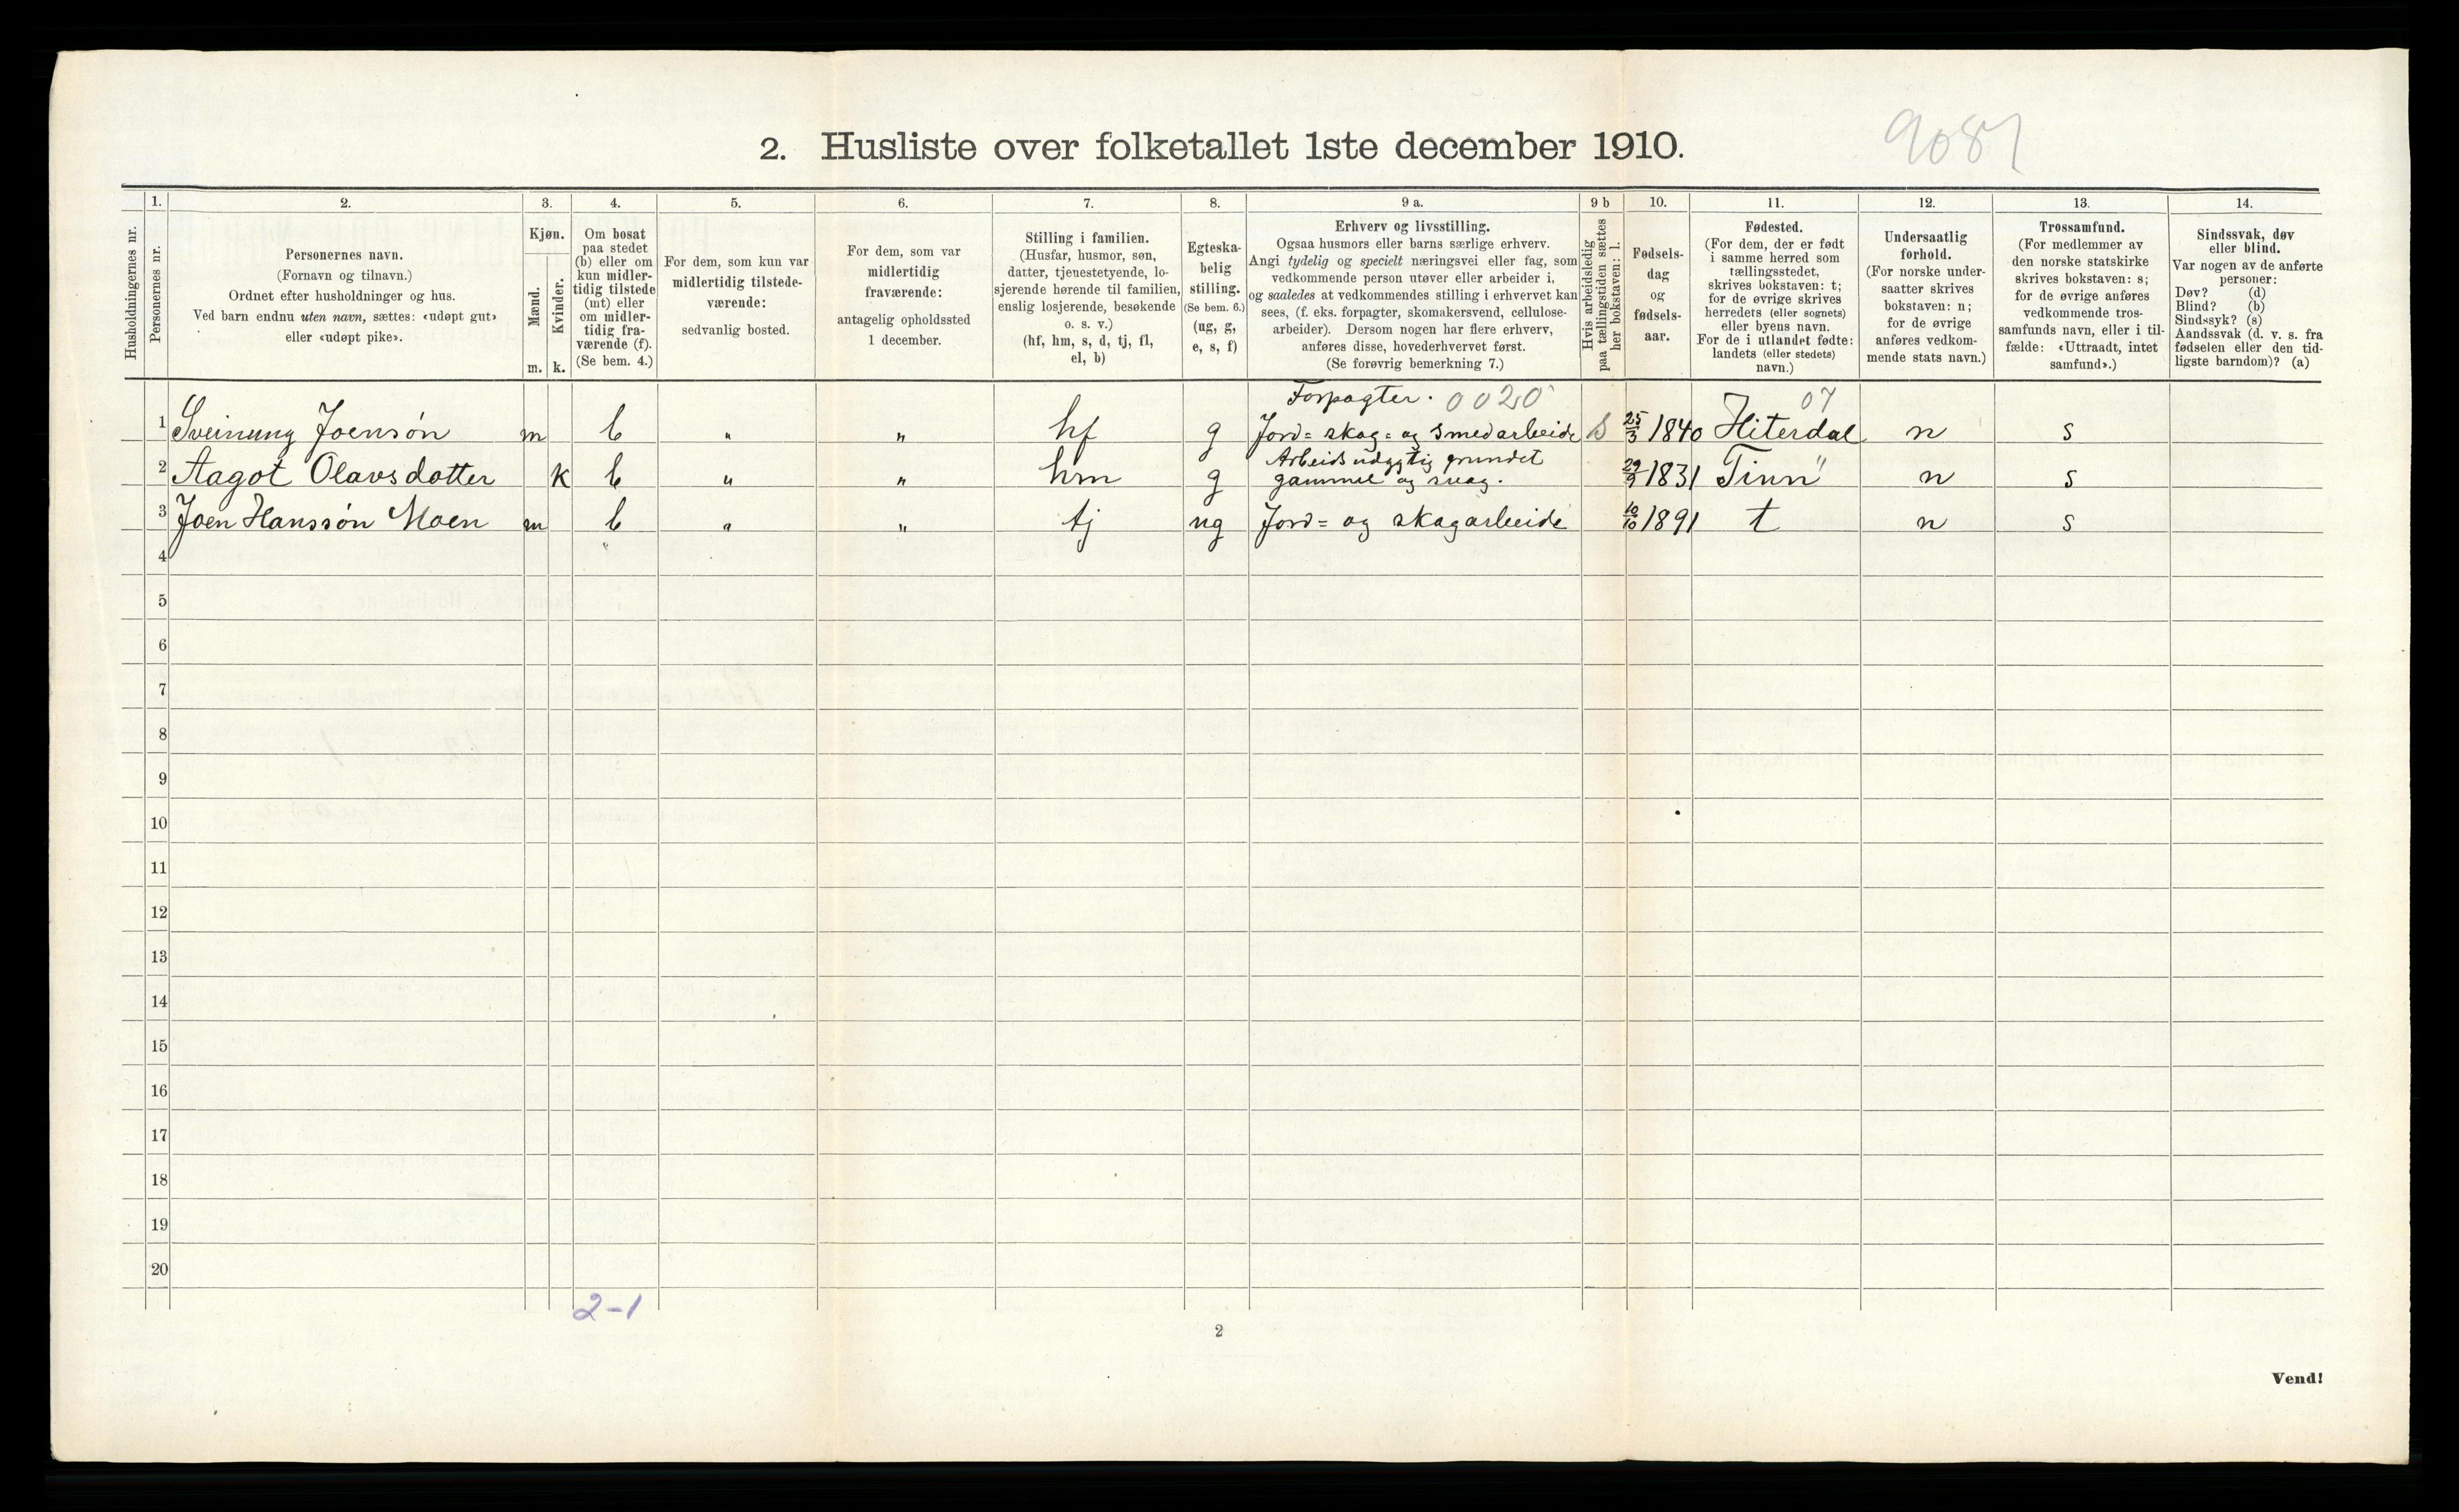 9087
2. Husliste over folketallet 1ste december 1910.
Husholdningernes nr.
1.
Personernes nr.
2.
Personernes navn.
(Fornavn og tilnavn.)
Ordnet efter husholdninger og hus.
Ved barn endnu uten navn, sættes: «udøpt gut»
eller «udøpt pike».
3.
Kjøn.
Mænd.
Kvinder.
m.
k.
4.
Om bosat
paa stedet
(b) eller om
kun midler-
tidig tilstede
(mt) eller
om midler-
tidig fra-
værende (f).
(Se bem. 4.)
5.
For dem, som kun var
midlertidig tilstede-
værende:
sedvanlig bosted.
6.
For dem, som var
midlertidig
fraværende:
antagelig opholdssted
1 december.
7.
Stilling i familien.
(Husfar, husmor, søn,
datter, tjenestetyende, lo-
sjerende hørende til familien,
enslig losjerende, besøkende
o. s. v.)
(hf, hm, s, d, tj, fl,
el, b)
8.
Egteska-
belig
stilling.
(Se bem. 6.)
(ug, g,
e, s, f)
9 a.
Erhverv og livsstilling.
Ogsaa husmors eller barns særlige erhverv.
Angi tydelig og specielt næringsvei eller fag, som
vedkommende person utøver eller arbeider i,
og saaledes at vedkommendes stilling i erhvervet kan
sees, (f. eks. forpagter, skomakersvend, cellulose-
arbeider). Dersom nogen har flere erhverv,
anføres disse, hovederhvervet først.
(Se forøvrig bemerkning 7.)
9 b
Hvis arbeidsledig
paa tællingstiden sættes
her bokstaven: l.
10.
Fødsels-
dag
og
fødsels-
aar.
11.
Fødested.
(For dem, der er født
i samme herred som
tællingsstedet,
skrives bokstaven: t;
for de øvrige skrives
herredets (eller sognets)
eller byens navn.
For de i utlandet fødte:
landets (eller stedets)
navn.)
12.
Undersaatlig
forhold.
(For norske under-
saatter skrives
bokstaven: n;
for de øvrige
anføres vedkom-
mende stats navn.)
13.
Trossamfund.
(For medlemmer av
den norske statskirke
skrives bokstaven: s;
for de øvrige anføres
vedkommende tros-
samfunds navn, eller i til-
fælde: «Uttraadt, intet
samfund».)
14.
Sindssvak, døv
eller blind.
Var nogen av de anførte
personer:
Døv? (d)
Blind? (b)
Sindssyk? (s)
Aandssvak (d. v. s. fra
fødselen eller den tid-
ligste barndom)? (a)
Forpagter. 0020 07
1 Sveinung Joensøn m b " " hf g Jord= skog= og smedarbeide 25/3 1840 Hiterdal n s
Arbeidsudygtig grundet
2 Aagot Olavsdotter k b " " hm g gammel og svag. 29/9 1831 Tinn " n s
3 Joen Hanssøn Moen m b " " tj ug Jord= og skogarbeide 10/10 1891 t n s
4 "
5
6
7
8
9
10
11
12
13
14
15
16
17
18
19
20
2-1
2
Vend!